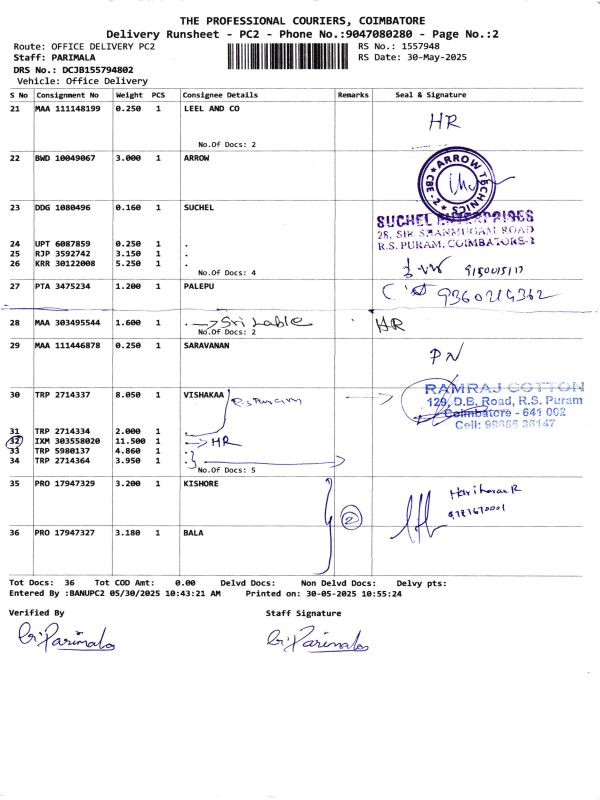 THE PROFESSIONAL COURIERS, COIMBATORE
Delivery Runsheet - PC2 - Phone No.:9047080280 - Page No.:2
Route: OFFICE DELIVERY PC2
RS No.: 1557948
Staff: PARIMALA
RS Date: 30-May-2025
DRS No.: DCJB155794802
Vehicle: Office Delivery
S No Consignment No Weight PCS Consignee Details Remarks Seal & Signature
21 MAA 111148199 0.250 1 LEEL AND CO
HR
No.Of Docs: 2
22 BWD 10049067 3.000 1 ARROW
ARROW TECHNICS
CBE-2
23 DDG 1080496 0.160 1 SUCHEL
SUCHEL ENTERPRISES
28, SIR SHANMUGAM ROAD
R.S. PURAM, COIMBATORE-2
24 UPT 6087859 0.250 1 .
25 RJP 3592742 3.150 1 .
26 KRR 30122008 5.250 1 .
No.Of Docs: 4
27 PTA 3475234 1.200 1 PALEPU
9360219362
28 MAA 303495544 1.600 1 . → Sri Lable HR
No.Of Docs: 2
29 MAA 111446878 0.250 1 SARAVANAN
PN
30 TRP 2714337 8.050 1 VISHAKAA R.S. Puram
RAMRAJ COTTON
129, D.B. Road, R.S. Puram
Coimbatore - 641 002
31 TRP 2714334 2.000 1 .
32 IXM 303558020 11.500 1 . → HR
33 TRP 5980137 4.860 1 .
34 TRP 2714364 3.950 1 .
No.Of Docs: 5
35 PRO 17947329 3.200 1 KISHORE
Hariharan R
2
36 PRO 17947327 3.180 1 BALA
Tot Docs: 36 Tot COD Amt: 0.00 Delvd Docs: Non Delvd Docs: Delvy pts:
Entered By :BANUPC2 05/30/2025 10:43:21 AM Printed on: 30-05-2025 10:55:24
Verified By Staff Signature
G. Parimala G. Parimala